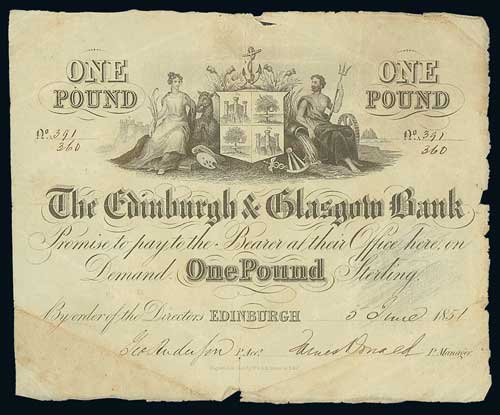 ONE POUND
ONE POUND
No. 391/360
No. 391/360
The Edinburgh & Glasgow Bank
Promise to pay to the Bearer at their Office here, on
Demand One Pound Sterling.
By order of the Directors EDINBURGH 5 June 1851
Geo Anderson
James Donald Pr. Manager